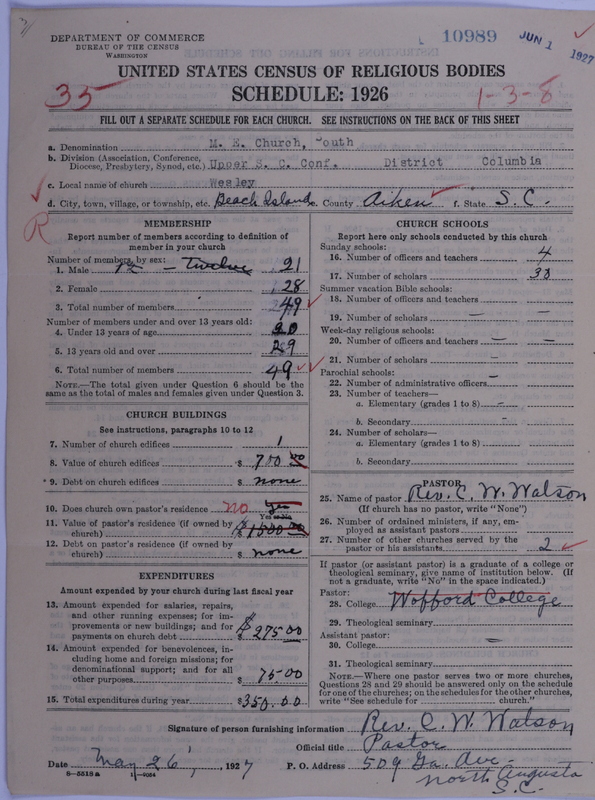 DEPARTMENT OF COMMERCE
BUREAU OF THE CENSUS
WASHINGTON
10989
JUN 1 1927
UNITED STATES CENSUS OF RELIGIOUS BODIES
SCHEDULE: 1926
35
1-3-8
FILL OUT A SEPARATE SCHEDULE FOR EACH CHURCH. SEE INSTRUCTIONS ON THE BACK OF THIS SHEET
a. Denomination M. E. Church, South
b. Division (Association, Conference, Diocese, Presbytery, Synod, etc.) Upper S. C. Conf. District Columbia
c. Local name of church Wesley
d. City, town, village, or township, etc. Beach Island e. County Aiken f. State S. C.
R
MEMBERSHIP
Report number of members according to definition of
member in your church
Number of members, by sex:
1. Male 12 - twelve 21
2. Female 28
3. Total number of members 49
Number of members under and over 13 years old:
4. Under 13 years of age 20
5. 13 years old and over 29
6. Total number of members 49
NOTE.—The total given under Question 6 should be the
same as the total of males and females given under Question 3.
CHURCH BUILDINGS
See instructions, paragraphs 10 to 12
7. Number of church edifices 1
8. Value of church edifices $ 700 00
9. Debt on church edifices $ none
10. Does church own pastor's residence no Yes
Yes or No
11. Value of pastor's residence (if owned by
church) $ 1500 00
12. Debt on pastor's residence (if owned by
church) $ none
EXPENDITURES
Amount expended by your church during last fiscal year
13. Amount expended for salaries, repairs,
and other running expenses; for im-
provements or new buildings; and for
payments on church debt $ 275 00
14. Amount expended for benevolences, in-
cluding home and foreign missions; for
denominational support; and for all
other purposes $ 75.00
15. Total expenditures during year $ 350.00
CHURCH SCHOOLS
Report here only schools conducted by this church
Sunday schools:
16. Number of officers and teachers 4
17. Number of scholars 33
Summer vacation Bible schools:
18. Number of officers and teachers
19. Number of scholars — —
Week-day religious schools:
20. Number of officers and teachers — —
21. Number of scholars —
Parochial schools:
22. Number of administrative officers —
23. Number of teachers—
a. Elementary (grades 1 to 8) —
b. Secondary —
24. Number of scholars—
a. Elementary (grades 1 to 8)
b. Secondary
PASTOR
25. Name of pastor Rev. C. W. Watson
(If church has no pastor, write "None")
26. Number of ordained ministers, if any, em-
ployed as assistant pastors
27. Number of other churches served by the
pastor or his assistants 2
If pastor (or assistant pastor) is a graduate of a college or
theological seminary, give name of institution below. (If
not a graduate, write "No" in the space indicated.)
Pastor:
28. College Wofford College
29. Theological seminary
Assistant pastor:
30. College —
31. Theological seminary
NOTE.—Where one pastor serves two or more churches,
Questions 28 and 29 should be answered only on the schedule
for one of the churches; on the schedules for the other churches,
write "See schedule for church."
Signature of person furnishing information Rev. C. W. Watson
Official title Pastor
Date May 26, 1927 P. O. Address 509 Ga. Ave.
North Augusta
S.C.
8—5518 a 11—9054